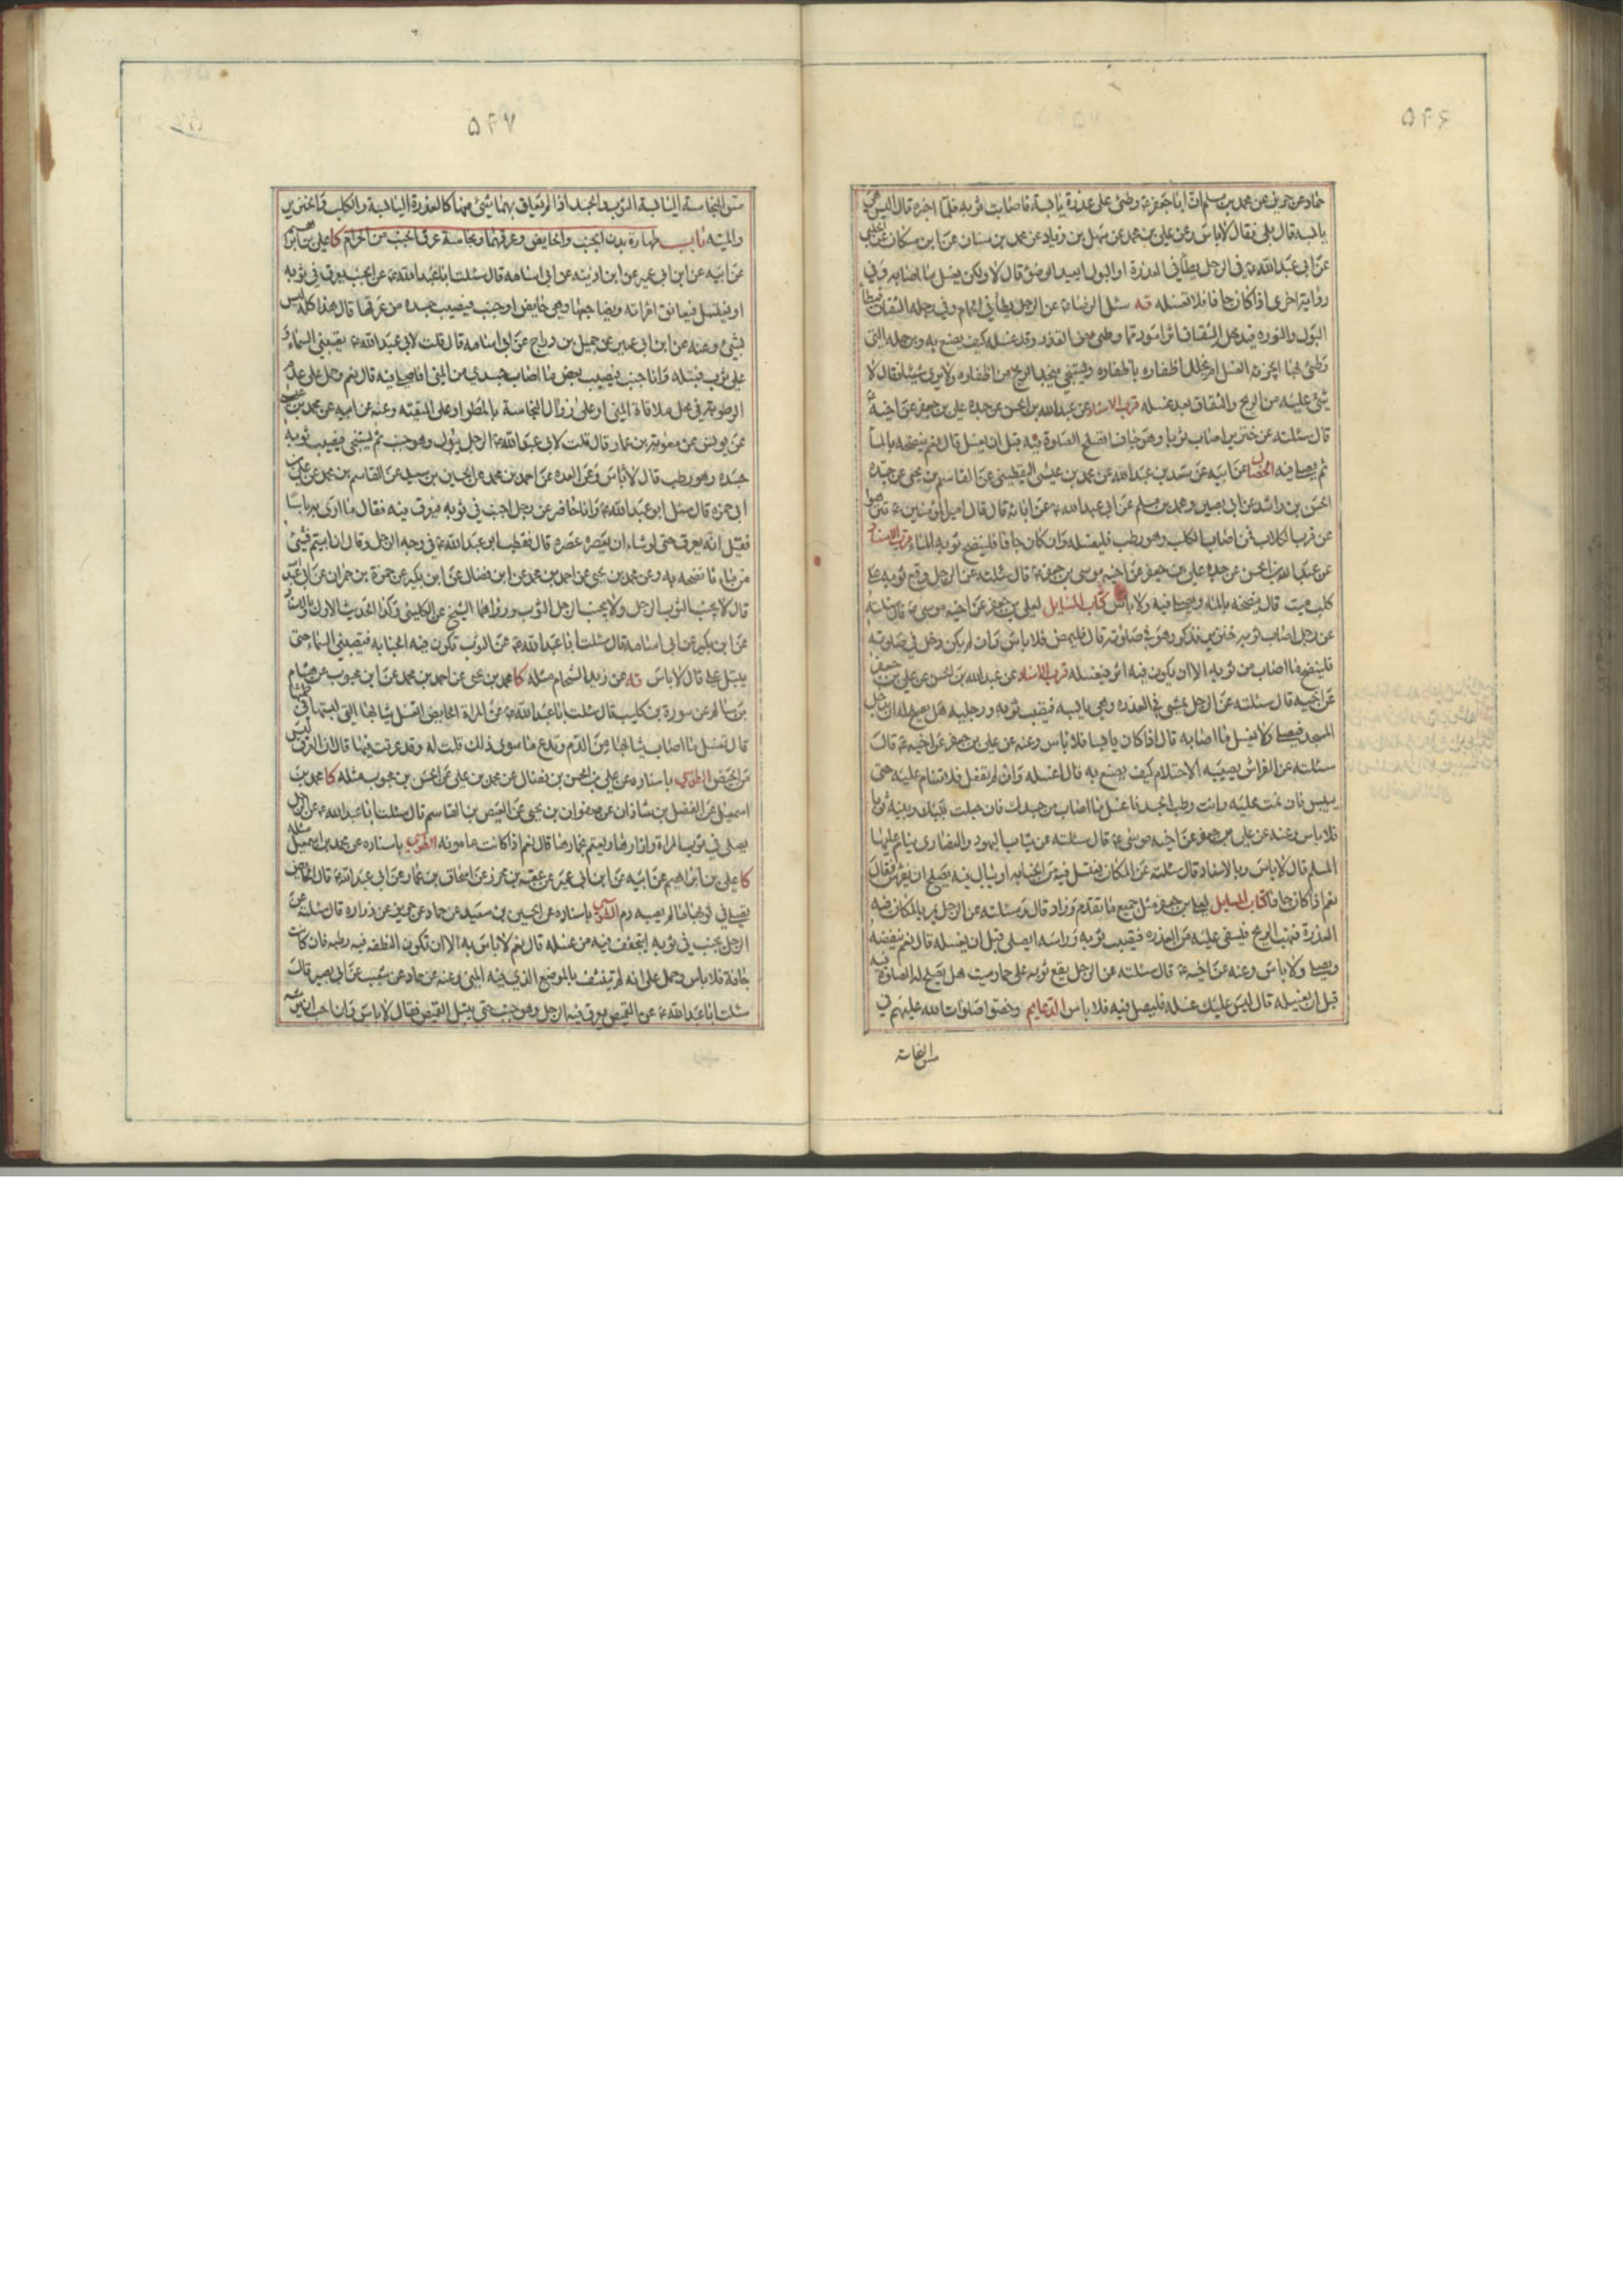 ۵۴۶
حماد عن حريز عن محمد بن مسلم ان ابا جعفر ع وطئ على عذرة يابسة فاصابت ثوبه فلما اخبره قال اليس هي
يابسة قال بلى فقال لاباس وعن علي بن محمد عن سهل بن زياد عن محمد بن سنان عن ابن مسكان عن الحلبي
عن ابى عبد الله ع فى الرجل يطأ فى العذرة او البول ايعيد الوضوء قال لا ولكن يغسل ما اصابه وفي
رواية اخرى اذا كان جافا فلا تغسله قه سئل الرضا ع عن الرجل يطأ في الحمام وفي رجله الشقاق فيطأ
البول والنورة فيدخل الشقاق اثر اسود مما وطئ من القذر وقد غسله كيف يصنع به وبرجله التى
وطئ بها ايجزيه الغسل ام يخلل اظفاره باظفاره ويستنجي فيجد الريح من اظفاره ولا يرى شيئا فقال لا
شئ عليه من الريح والشقاق بعد غسله قرب الاسناد عن عبد الله بن الحسن عن جده علي بن جعفر عن اخيه ع
قال سئلته عن خنزير اصاب ثوبا وهو جاف اتصلح الصلوة فيه قبل ان يغسل قال نعم ينضحه بالماء
ثم يصلى فيه الخصال عن ابيه عن سعد بن عبد الله عن محمد بن عيسى اليقطيني عن القاسم بن يحيى عن جده
الحسن بن راشد عن ابى بصير ومحمد بن مسلم عن ابى عبد الله ع عن ابائه قال قال امير المؤمنين ع تنزهوا
عن قرب الكلاب فمن اصاب الكلب وهو رطب فليغسله وان كان جافا فلينضح ثوبه بالماء قرب الاسناد
عن عبد الله بن الحسن عن جده علي بن جعفر عن اخيه موسى بن جعفر ع قال سئلته عن الرجل وقع ثوبه على
كلب ميت قال ينضحه بالماء ويصلى فيه ولا باس كتاب المسايل لعلي بن جعفر عن اخيه موسى ع قال سئلته
عن رجل اصاب ثوبه خنزير فذكر وهو في صلوته قال فليمض فلا باس وان لم يكن دخل في صلوته
فلينضح ما اصاب من ثوبه الا ان يكون فيه اثر فيغسله قرب الاسناد عن عبد الله بن الحسن عن علي بن جعفر
عن اخيه قال سئلته عن الرجل يمشى في العذرة وهي يابسة فيصيب ثوبه ورجليه هل يصلح له ان يدخل
المسجد فيصلى ولا يغسل ما اصابه قال اذا كان يابسا فلا باس وعنه عن علي بن جعفر عن اخيه ع قال
سئلته عن الفراش يصيبه الاحتلام كيف يصنع به قال اغسله وان لم تفعل فلا تنام عليه حتى
ييبس فان نمت عليه وانت رطب الجسد فاغسل ما اصاب من جسدك فان جعلت بينك وبينه ثوبا
فلا باس وعنه عن علي بن جعفر عن اخيه موسى ع قال سئلته عن ثياب اليهود والنصارى ينام عليها
المسلم قال لا باس وبالاسناد قال سئلته عن المكان يغتسل فيه من الجنابه او يبال فيه يصلح ان يفرش فقال
نعم اذا كان جافا كتاب المسايل لعلي بن جعفر مثل جميع ما تقدم وزاد قال وسئلته عن الرجل يمر بالمكان فيه
العذرة فتهب الريح فتسفي عليه من العذره فيصيب ثوبه وراسه ايصلى قبل ان يغسله قال نعم ينفضه
ويصلى ولا باس وعنه عن اخيه ع قال سئلته عن الرجل يقع ثوبه على حمار ميت هل يصلح له الصلوة فيه
قبل ان يغسله قال ليس عليك غسله فليصل فيه فلا باس الدعايم ورخصوا صلوات الله عليهم في
مس النجاسة
۵۴۷
مس النجاسة اليابسة الثوب والجسد اذا لم يتعلق بهما شئ منها كالعذرة اليابسة والكلب والخنزير
والميتة باب طهارة بدن الجنب والحايض وعرقهما ونجاسة عرق الجنب من الحرام كا علي بن ابرهيم
عن ابيه عن ابن ابى عمير عن ابن اذينه عن ابى اسامه قال سئلت ابا عبد الله ع عن الجنب يعرق فى ثوبه
او يغتسل فيعانق امراته ويضاجعها وهي حايض او جنب فيصيب جسده من عرقها قال هذا كله ليس
بشئ وعنه عن ابن ابى عمير عن جميل بن دراج عن ابى اسامه قال قلت لابي عبد الله ع يصيبني السماء و
علي ثوب فتبله وانا جنب فيصيب بعض ما اصاب جسدي من المني افاصلى فيه قال نعم وحمل على عدم
الرطوبة في محل ملاقاة المني او على زوال النجاسة بالمطر او على التقية وعنه عن ابيه عن محمد بن عيسى
عن يونس عن معوية بن عمار قال قلت لابى عبد الله ع الرجل يبول وهو جنب ثم يستنجى فيصيب ثوبه
جسده وهو رطب قال لاباس وعن العدة عن احمد بن محمد عن الحسين بن سعيد عن القاسم بن محمد عن علي بن
ابى حمزه قال سئل ابو عبد الله ع وانا حاضر عن رجل اجنب في ثوبه فيعرق فيه فقال ما ارى به باسا
فقيل انه يعرق حتى لو شاء ان يعصره عصره قال فقطب ابو عبد الله ع في وجه الرجل وقال ان ابيتم فشئ
من ماء فانضحه به وعن محمد بن يحيى عن احمد بن محمد عن ابن فضال عن ابن بكير عن حمزة بن حمران عن ابى عبد الله
قال لا يجنب الثوب الرجل ولا يجنب الرجل الثوب ورواهما الشيخ عن الكليني وكذا الحديث الاول وبالاسناد
عن ابن بكير عن ابى اسامه قال سئلت ابا عبد الله ع عن الثوب تكون فيه الجنابه فيصيبني السماء حتى
يبتل علي قال لاباس قه عن زيد الشحام مثله كا محمد بن يحيى عن احمد بن محمد عن ابن محبوب عن هشام
بن سالم عن سورة بن كليب قال سئلت ابا عبد الله ع عن المراة الحايض اتغسل ثيابها التى لبستها في طمثها
قال تغسل ما اصاب ثيابها من الدم وتدع ما سوى ذلك قلت له وقد عرقت فيها قال ان العرق ليس
من الحيض الطوسي باسناده عن علي بن الحسن بن فضال عن محمد بن علي عن الحسن بن محبوب مثله كا محمد بن
اسمعيل عن الفضل بن شاذان عن صفوان بن يحيى عن العيص بن القاسم قال سئلت ابا عبد الله ع عن الرجل
يصلى في ثوب المراة وازارها ويعتم بخمارها قال نعم اذا كانت مامونه الطوسي باسناده عن محمد بن اسمعيل مثله
كا علي بن ابراهيم عن ابيه عن ابن ابى عمير عن عقبه بن محرز عن اسحاق بن عمار عن ابى عبد الله ع قال الحايض
تصلي في ثوبها ما لم يصبه دم الطوسي باسناده عن الحسين بن سعيد عن حماد عن حريز عن زراره قال سئلته عن
الرجل يجنب في ثوبه ايتجفف فيه من غسله قال نعم لا باس به الا ان تكون النطفه فيه رطبه فان كانت
جافة فلا باس وحمل على انه لم يتنشف بالموضع الذي فيه المني وعنه عن حماد عن شعيب عن ابى بصير قال
سئلت ابا عبد الله ع عن القميص يعرق فيه الرجل وهو جنب حتى يبتل القميص فقال لا باس وان احب ان يرشه